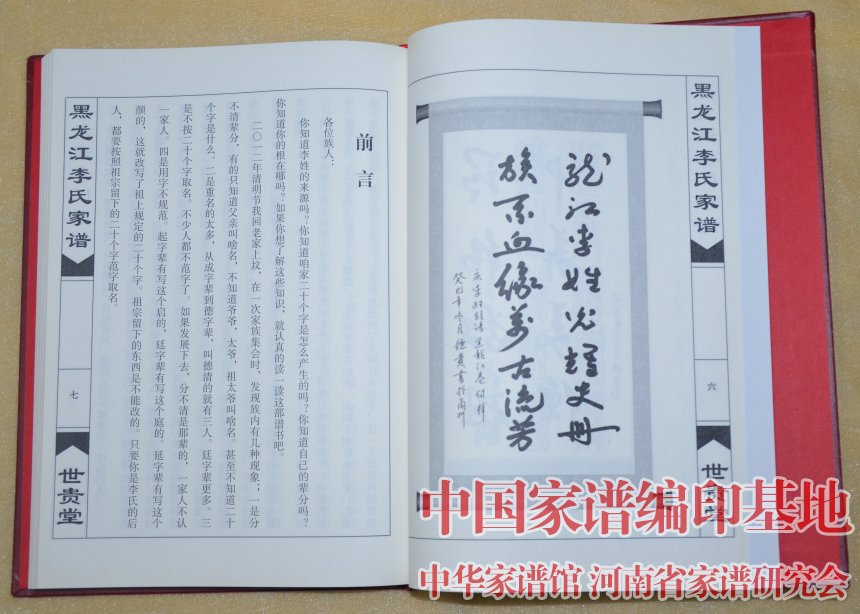 黑龙江李氏家谱
六
世贵堂
龍江李姓光耀史册
族系血缘萬古流芳
庆李姓族谱黑龙江卷付梓
癸巳年冬月德贵书於兰州
前言
各位族人：
你知道李姓的来源吗？你知道咱家二十个字是怎么产生的吗？你知道自己的辈分吗？
你知道你的根在哪吗？如果你想了解这些知识，就认真的读一读这部谱书吧。
二〇一二年清明节我回老家上坟，在一次家族集会时，发现族内有几种现象：一是分
不清辈分，有的只知道父亲叫啥名，不知道爷爷，太爷，祖太爷叫啥名。甚至不知道二十
个字是什么。二是重名的太多，从成字辈到德字辈，叫德清的就有三人。廷字辈更多。三
是不按二十个字取名。不少人都不范字了。如果发展下去，分不清是那辈的，一家人不认
一家人。四是用字不规范。起字辈有写这个启的，廷字辈有写这个庭的。延字辈有写这个
颜的，这就改写了祖上规定的二十个字。祖宗留下的东西是不能改的。只要你是李氏的后
人，都要按照祖宗留下的二十个字范字取名。
黑龙江李氏家谱
七
世贵堂
中国家谱编印基地
中华家谱馆 河南省家谱研究会